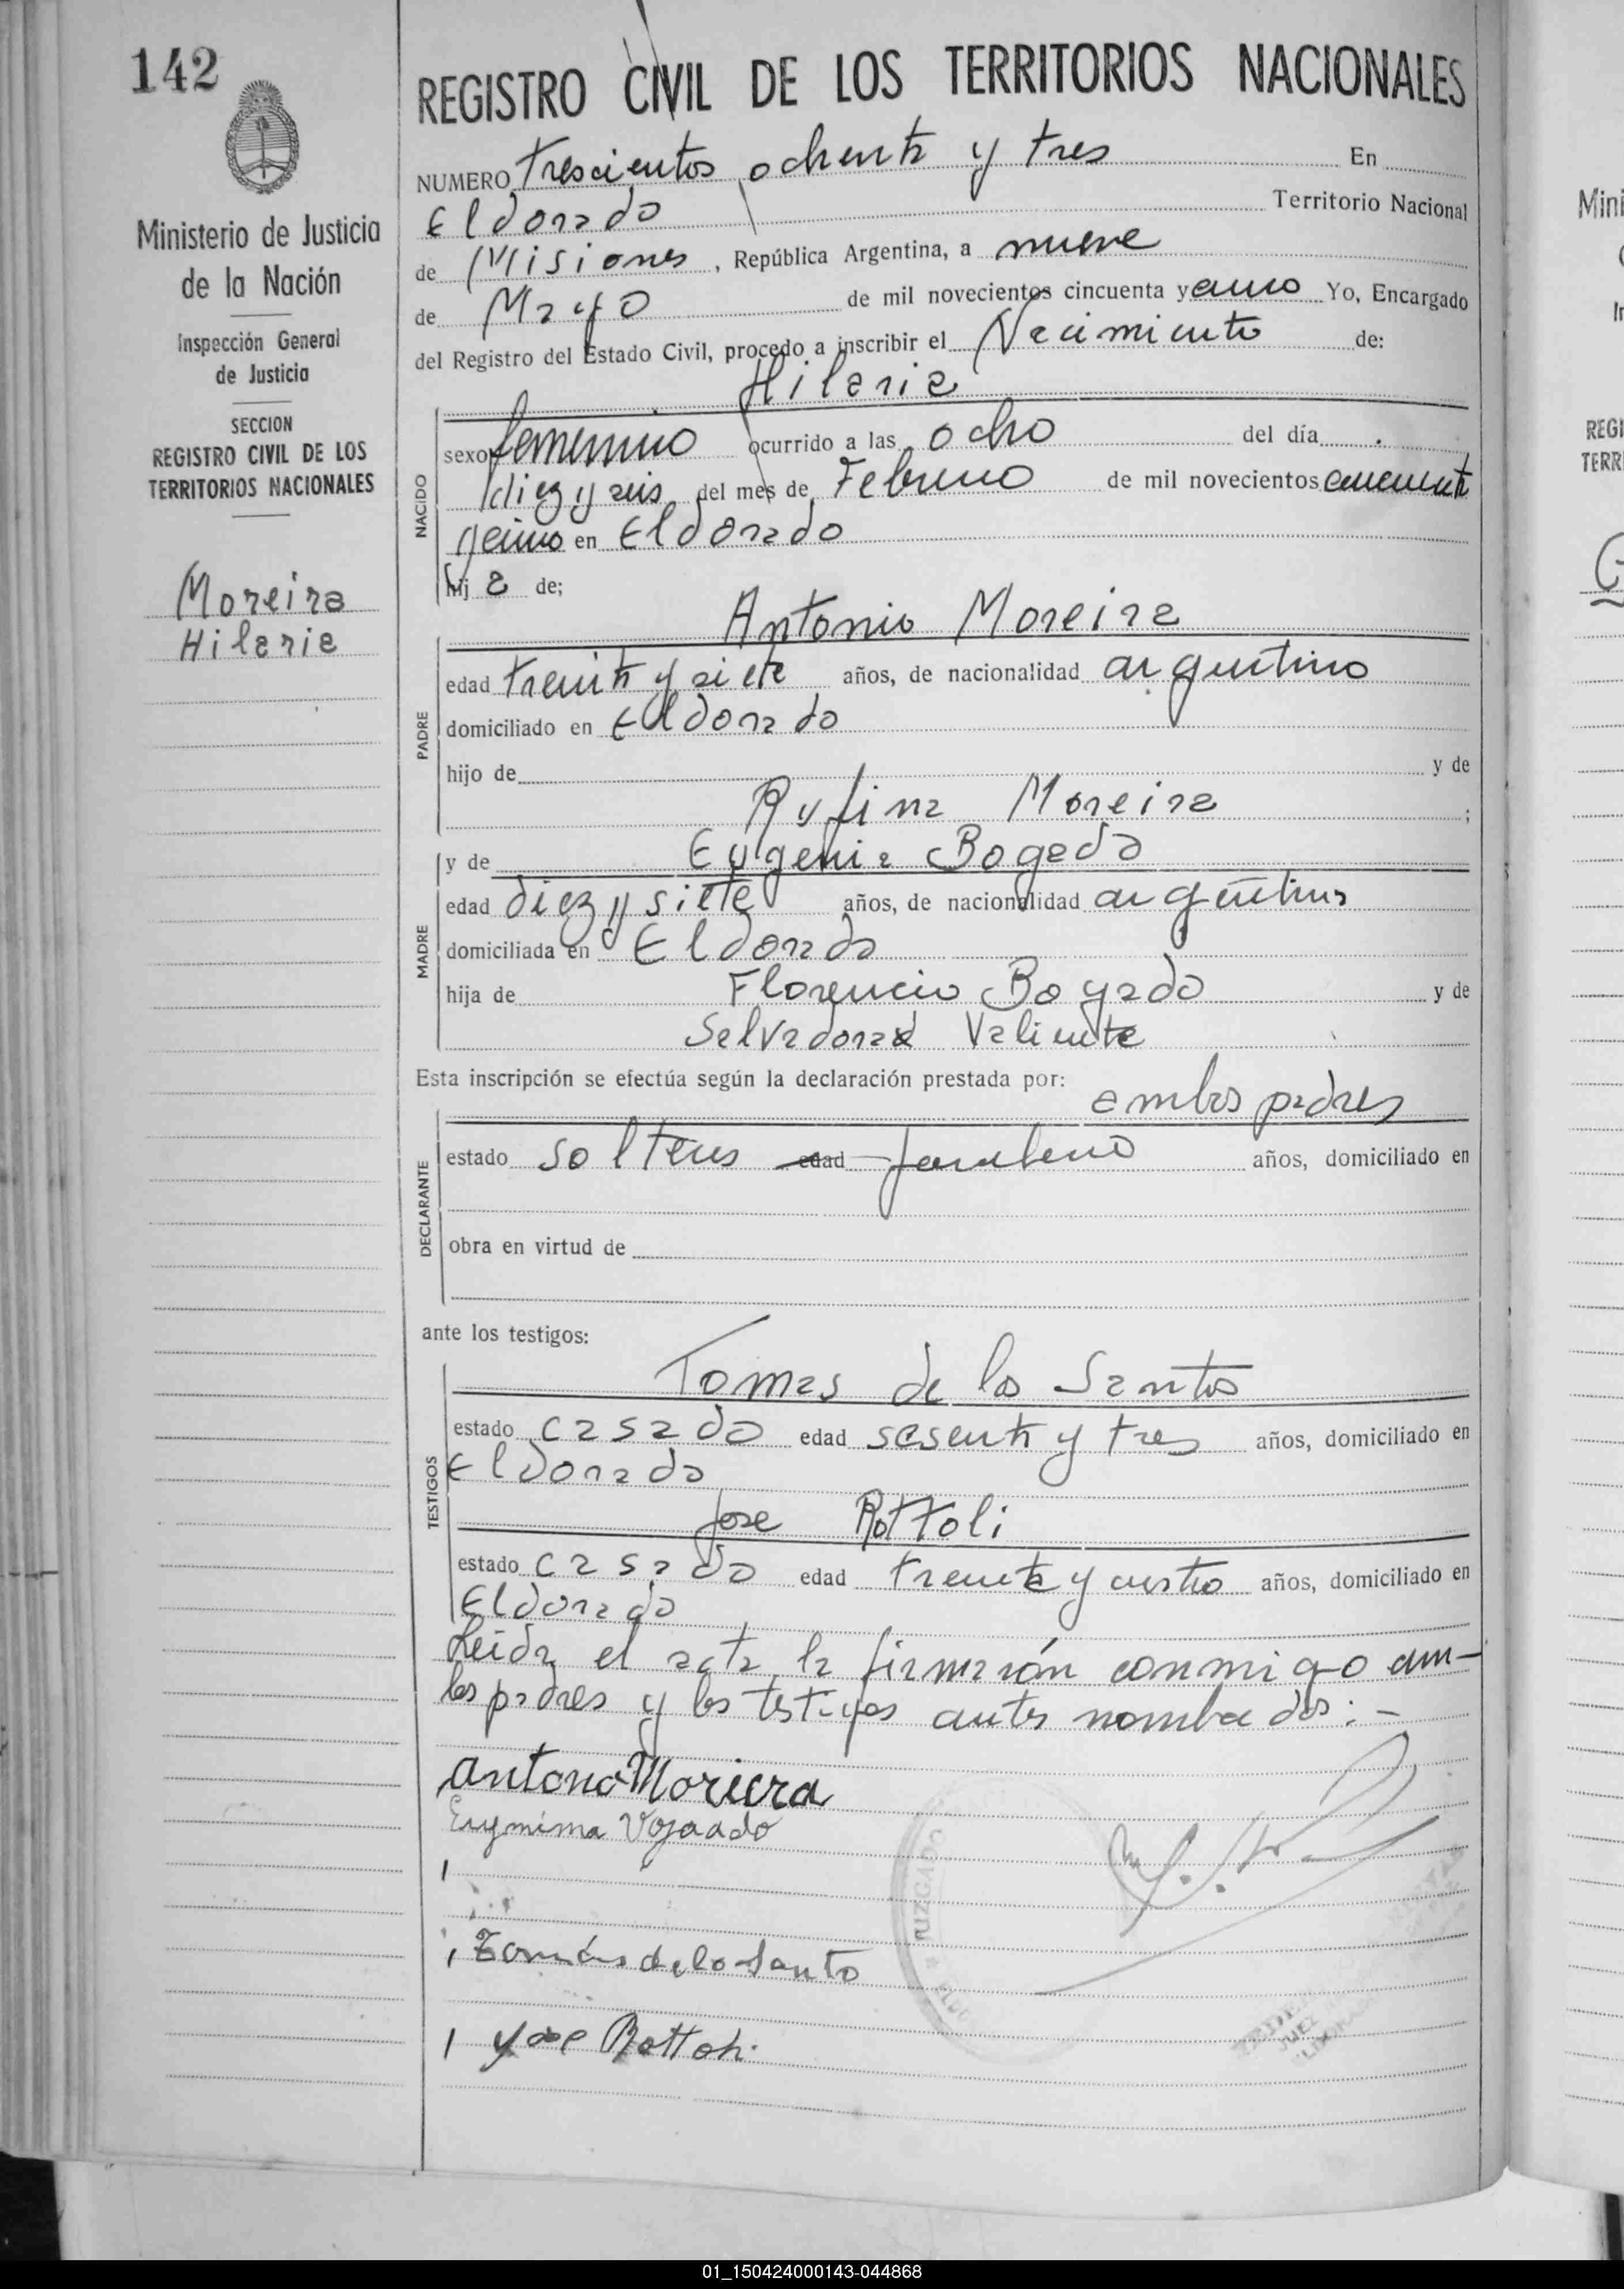 142
REGISTRO CIVIL DE LOS TERRITORIOS NACIONALES
Ministerio de Justicia
de la Nación
Inspección General
de Justicia
SECCION
REGISTRO CIVIL DE LOS
TERRITORIOS NACIONALES
Moreira
Hilaria
NUMERO trescientos ochenta y tres En
Eldorado Territorio Nacional
de Misiones, República Argentina, a nueve
de Mayo de mil novecientos cincuenta y cinco Yo, Encargado
del Registro del Estado Civil, procedo a inscribir el Nacimiento de:
Hilaria
NACIDO
sexo femenino ocurrido a las ocho del día
diez y seis del mes de Febrero de mil novecientos cincuenta
y cinco en Eldorado
hij a de;
Antonio Moreira
PADRE
edad treinta y siete años, de nacionalidad argentino
domiciliado en Eldorado
hijo de y de
Rufina Moreira ;
y de Eugenia Bogado
MADRE
edad diez y siete años, de nacionalidad argentina
domiciliada en Eldorado
hija de Florencio Bogado y de
Salvadora Valiente
Esta inscripción se efectúa según la declaración prestada por:
ambos padres
DECLARANTE
estado solteros edad años, domiciliado en
obra en virtud de
ante los testigos:
Tomas de los Santos
TESTIGOS
estado casado edad sesenta y tres años, domiciliado en
Eldorado
Jose Rottoli
estado casado edad treinta y cuatro años, domiciliado en
Eldorado
Leida el acta, la firmarón conmigo am-
bos padres y los testigos antes nombrados: -
antono Moriera
Vogaado
Tomás de lo Santo
Rottoli
JUZGADO
JUEZ
Mini
REGI
TERR
01_150424000143-044868